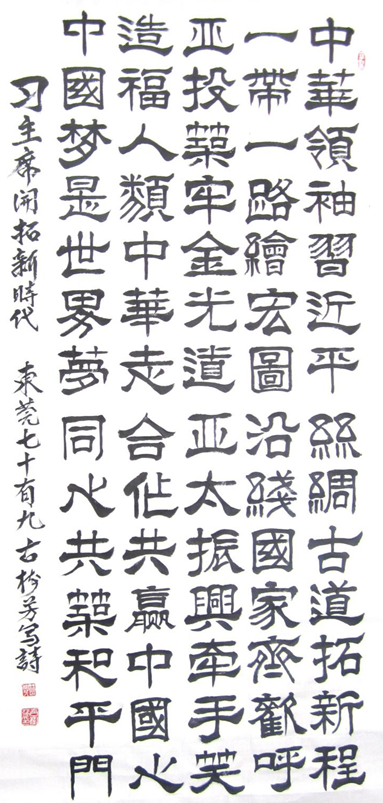 中華領袖習近平絲綢古道拓新程
一帶一路繪宏圖沿綫國家齊歡呼
亚投築牢金光道亚太振興牽手笑
造福人類中華走合作共贏中國心
中國梦是世界夢同心共築和平門
习主席開拓新時代 東莞七十有九古芳写詩